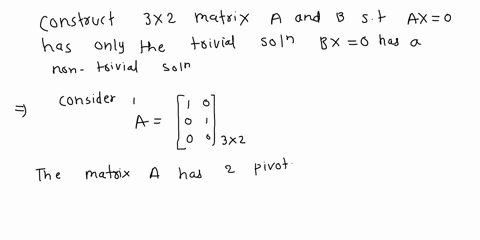 Construct 3x2 matrix A and B s.t AX=0
has only the trivial soln BX=0 has a
non-trivial soln
⇒ Consider,
A = [1 0
0 1
0 0] 3x2
The matrix A has 2 pivot.